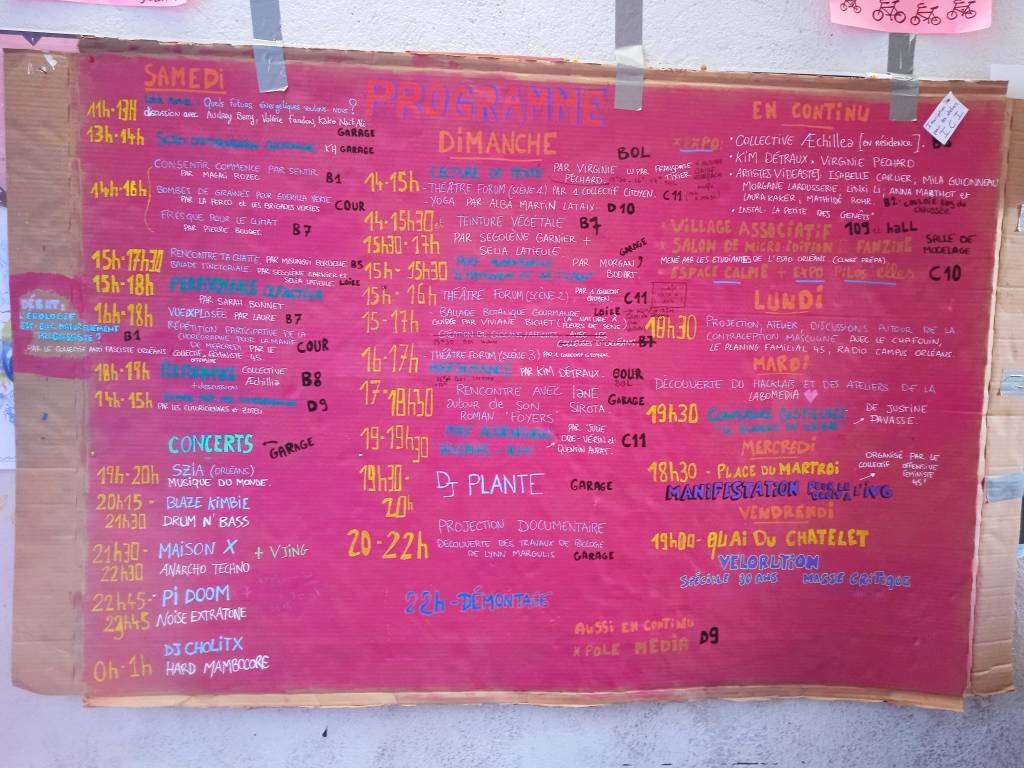 PROGRAMME
SAMEDI
11h-13H
Quels futurs énergétiques voulons nous?
discussion avec Audrey Berry, Valérie Faudon, Kako Naït Ali
GARAGE
13h-14h
K4 GARAGE
CONSENTIR COMMENCE PAR SENTIR
PAR MAGALI ROZEC
B1
14h-16h
BOMBES DE GRAINES POUR GUERILLA VERTE
PAR LA PERCO et LES BRIGADES VERTES
COUR
FRESQUE POUR LE CLIMAT
PAR PIERRE BOUDET.
B7
15h-17h30
RENCONTRE TA CHATTE PAR
B5
BALADE TINCTORIALE PAR SEGOLENE GARNIER et
SELIA LATIEULE
LOIRE
15h-18h
PERFORMANCE OLFACTIVE
PAR SARAH BONNET
16h-18h
VULVXPLOSEE PAR LAURE
B7
DÉBAT:
L'ÉCOLOGIE
EST-ELLE NATURELLEMENT
B1
PAR LE COLLECTIF ANTI FASCISTE ORLÉANS
RÉPÉTITION PARTICIPATIVE DE LA
CHORÉGRAPHIE POUR LA MANIF
DE MERCREDI PAR LE
COLLECTIF FÉMINISTE 45.
COUR
18h-19h
PERFORMANCE
COLLECTIVE
Æchillea
B8
14h-15h
D9
CONCERTS
GARAGE
19h-20h
SZIA (ORLÉANS)
MUSIQUE DU MONDE.
20h15-
21h30
BLAZE KIMBIE
DRUM N' BASS
21h30-
22h30
MAISON X + VJING
ANARCHO TECHNO
22h45-
23h45
PI DOOM
NOISE EXTRATONE
DJ CHOLITX
0h-1h
HARD MAMBOCORE
DIMANCHE
BOL
14-15h
LECTURE DE TEXTE PAR VIRGINIE
PÉCHARD
- THÉÂTRE FORUM (SCÈNE 1) PAR 1 COLLECTIF CITOYEN.
C11
- YOGA PAR ALBA MARTIN LATAIX
D10
14-15h30 et
15h30-17h
TEINTURE VÉGÉTALE
B7
PAR SEGOLENE GARNIER +
SELIA LATIEULE
15h-15h30
PAR MORGAN
BODART.
GARAGE
15h-16h
THÉÂTRE FORUM (SCÈNE 2)
C11
15-17h
- BALADE BOTANIQUE GOURMANDE
LOIRE
GUIDÉE PAR VIVIANE BICHET (LA NATURE A
FLEURS DE SENS)
B7
16h-17h
- THÉÂTRE FORUM (SCENE 3) PAR 1 COLLECTIF CITOYEN.
- PERFORMANCE PAR KIM DÉTRAUX.
COUR
BOL
17-
18h30
RENCONTRE AVEC Iane
autour de son SIROTA.
ROMAN "FOYERS"
GARAGE
19-19h30
PAR JULIE
QUENTIN AURAT.
C11
19h30-
20h
DJ PLANTE
GARAGE
20-22h
PROJECTION DOCUMENTAIRE
DÉCOUVERTE DES TRAVAUX DE BIOLOGIE
DE LYNN MARGULIS
GARAGE
22h-DÉMONTAGE
AUSSI EN CONTINU
x POLE MEDIA
D9
EN CONTINU
x EXPO:
• COLLECTIVE Æchillea [en résidence].
• KIM DÉTRAUX, VIRGINIE PECHARD
• ARTISTES VIDÉASTES: ISABELLE CARLIER, MILA GUIONNEAU
MORGANE LAROUSSERIE, LINXI LI, ANNA MARTHOT et
LAURA KAKER, MATHILDE ROHR.
• INSTAL: LA PETITE DES GENÊTS
x VILLAGE ASSOCIATIF
109 et hall
x SALON DE MICRO ÉDITION - FANZINE
SALLE DE
MODELAGE
MENÉ PAR LES ETUDIANTES DE L'ESAD ORLÉANS (CLASSE PRÉPA).
ESPACE CALME + EXPO PiLOS elles
C10
LUNDI
18h30
PROJECTION, ATELIER, DISCUSSIONS AUTOUR DE LA
CONTRACEPTION MASCULINE AVEC LE CHAFOUIN,
LE PLANNING FAMILIAL 45, RADIO CAMPUS ORLÉANS
MARDI
DÉCOUVERTE DU HACKLAB ET DES ATELIERS DE LA
LABOMEDIA
19h30
CONFÉRENCE GESTICULÉE
DE JUSTINE
DAVASSE.
MERCREDI
18h30 - PLACE DU MARTROI
ORGANISÉ PAR LE
COLLECTIF OFFENSIVE
FÉMINISTE
45
MANIFESTATION POUR LE DROIT A L'IVG
VENDREDI
19h00- QUAI DU CHATELET
VELORUTION
SPÉCIALE 30 ANS MASSE CRITIQUE